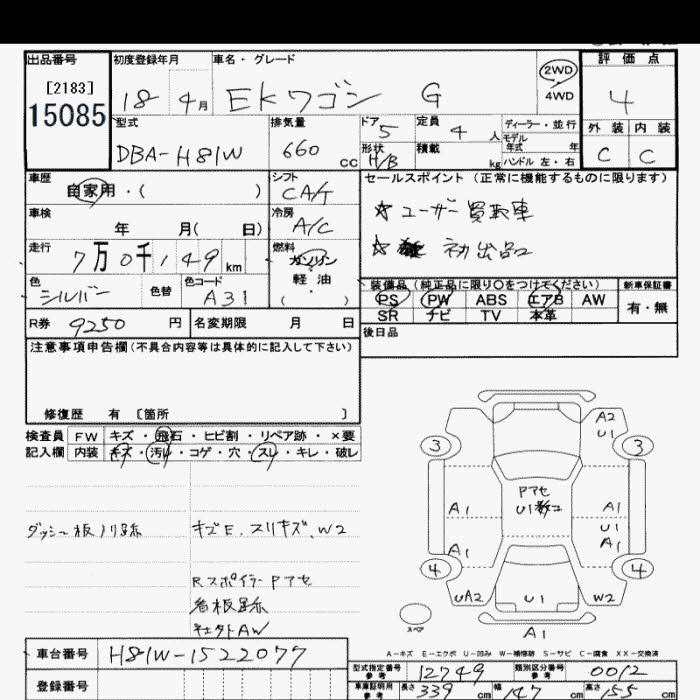 出品番号
[2183]
15085
初度登録年月
18 4月
車名・グレード
EKワゴン G
2WD
4WD
評価点
4
外装 内装
C C
型式
DBA-H81W
排気量
660 cc
ドア 5
形状 H/B
定員 4 人
積載 kg
ディーラー・並行
モデル年式 年
ハンドル 左・右
車歴
自家用・( )
シフト
CA/T
セールスポイント(正常に機能するものに限ります)
☆ ユーザー買取車
☆ 初出品
車検
年 月( 日)
冷房
A/C
走行
7万0千149 km
燃料
ガソリン
軽油
( ・ )
色
シルバー
色替
色コード
A31
装備品(純正品に限り○をつけてください)
PS PW ABS エアB AW
SR ナビ TV 本革
新車保証書
有・無
R券 9250 円
名変期限 月 日
後日品
注意事項申告欄(不具合内容等は具体的に記入して下さい)
修復歴 有 〔箇所 〕
検査員記入欄
FW キズ・飛石・ヒビ割・リペア跡・×要
内装 キズ・汚レ・コゲ・穴・スレ・キレ・破レ
ダッシュ板ノリ跡
キズE、スリキズ、W2
RスポイラーPアセ
看板跡
A2
U1
3
3
Pアセ
A1
A1
A1
U1
A1
4
4
UA2
U1
W2
A1
スペア
A-キズ E-エクボ U-凹み W-補修跡 S-サビ C-腐食 XX-交換済
車台番号 H81W-1522077
登録番号
型式指定番号 参考 12749
類別区分番号 参考 0012
車庫証明用 参考 長さ 339 cm 幅 147 cm 高さ 155 cm